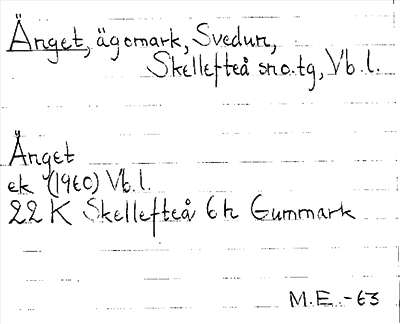 Änget, ägomark, Svedun,
Skellefteå sno.tg, Vb.l.
Änget
ek (1960) Vb.l.
22 K Skellefteå 6h Gummark
M.E.-63